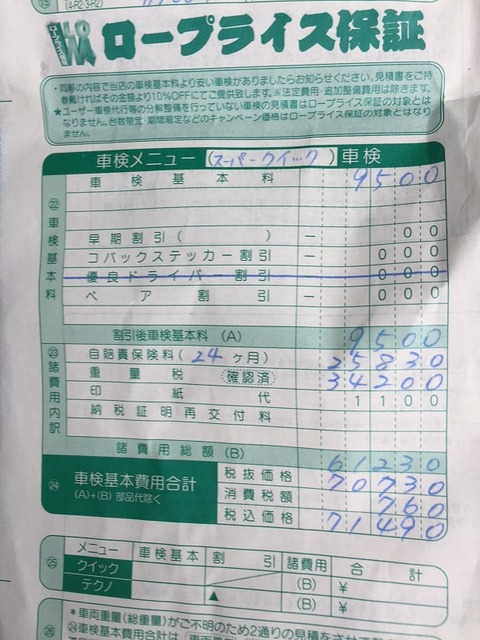 ⑲ (4-R2, 3-R2)
ロープライス保証
・同等の内容で当店の車検基本料より安い車検がありましたらお知らせください。見積書をご持
参戴ければその金額より10%OFFにてご提供致します。※法定費用・追加整備費用は除きます。
★ユーザー車検代行等の分解整備を行っていない車検の見積書はロープライス保証の対象とは
なりません。台数限定・期間限定などのキャンペーン価格はロープライス保証の対象とはなりま
せん。
車検メニュー (スーパークイック) 車検
㉒車検基本料
車検基本料 9500
早期割引( ) − 00
コバックステッカー割引 − 000
優良ドライバー割引 000
ペア割引 − 000
割引後車検基本料 (A) 9500
㉓諸費用内訳
自賠責保険料(24ヶ月) 25830
重量税 確認済 34200
印紙代 1100
納税証明再交付料
諸費用総額 (B) 61230
㉔ 車検基本費用合計
(A)+(B) 部品代除く
税抜価格 70730
消費税額 760
税込価格 71490
㉕ メニュー 車検基本 割引 諸費用 合計
クイック (B) ¥
テクノ ▲ (B) ¥
＊車両重量(総重量)がご不明のため2通りの見積をさせて
㉖